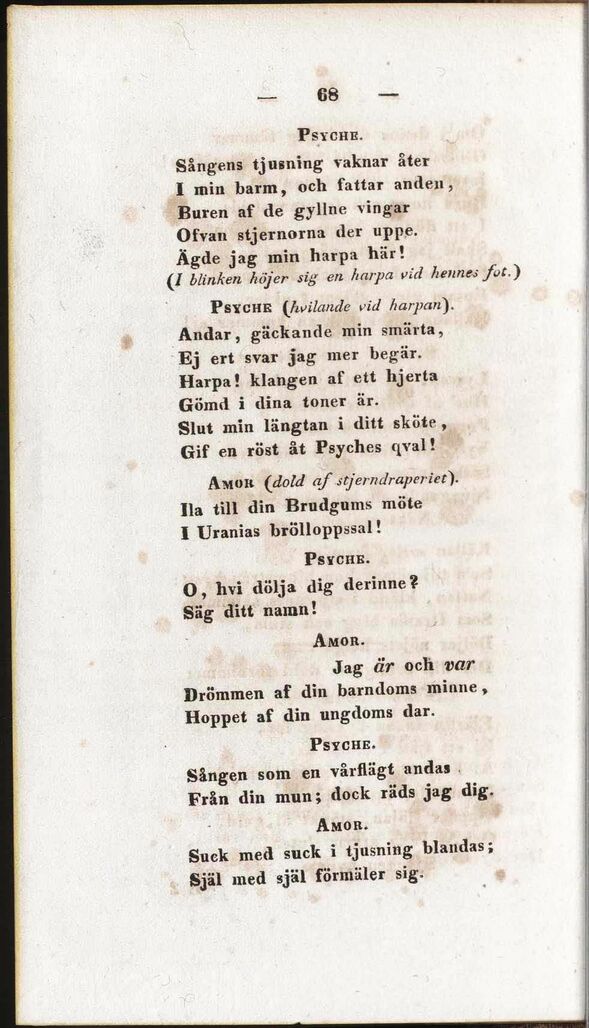 — 68 —
PSYCHE.
Sångens tjusning vaknar åter
I min barm, och fattar anden,
Buren af de gyllne vingar
Ofvan stjernorna der uppe.
Ägde jag min harpa här!
(I blinken höjer sig en harpa vid hennes fot.)
PSYCHE (hvilande vid harpan).
Andar, gäckande min smärta,
Ej ert svar jag mer begär.
Harpa! klangen af ett hjerta
Gömd i dina toner är.
Slut min längtan i ditt sköte,
Gif en röst åt Psyches qval!
AMOR (dold af stjerndraperiet).
Ila till din Brudgums möte
I Uranias brölloppssal!
PSYCHE.
O, hvi dölja dig derinne?
Säg ditt namn!
AMOR.
Jag är och var
Drömmen af din barndoms minne,
Hoppet af din ungdoms dar.
PSYCHE.
Sången som en vårflägt andas
Från din mun; dock räds jag dig.
AMOR.
Suck med suck i tjusning blandas;
Själ med själ förmäler sig.